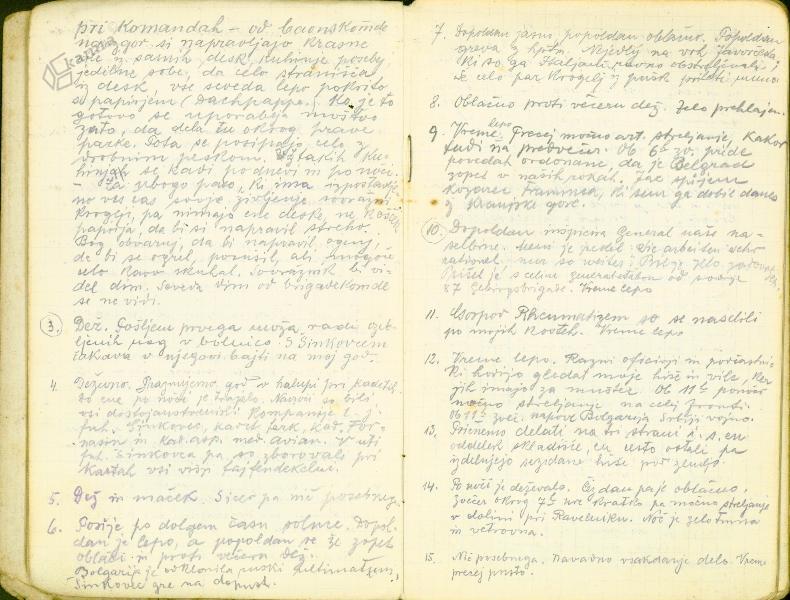 pri komandah - od baonskomde
navzgor si napravljajo krasne
iz samih desk, kuhinje posebej
jedilne sobe, da celo stranišča
iz desk, vse seveda lepo pokrito
s papirjem (Dachpappe). Ko je to
gotovo se uporablja moštvo
zato, da dela tu okrog prave
parke. Pota se posipajo celo z
drobnim peskom. V takih ku-
hinjah se kadi po dnevi in po noči.
- Za ubogo paro, ki ima izpostavlje-
no ves čas svoje življenje sovražni
krogli, pa nimajo ene deske, ne košček
papirja, da bi si napravil streho.
Bog obvaruj, da bi napravil ogenj,
da bi se ogrel, posušil, ali mogoče
celo kavo skuhal. Sovražnik bi vi-
del dim. Seveda dim od brigadekomde
se ne vidi.
3. Dež. Pošljem prvega moža radi ozeb-
ljenih nog v bolnico. S Šinkovcem
čakava v njegovi bajti na moj god.
4. Deževno. Praznujemo god v halupi pri kadetih
do ene po noči je trajalo. Navzoči so bili
vsi dostojanstveniki kompanije t. j.
fnh. Šinkovec, kadet ferk, kad.
in kad. asp. med. Avian. V uti
fnh. Šinkovca pa so zborovali pri
kartah vsi višji fajfendekelni.
5. Dež in maček. Sicer pa nič posebnega.
6. Posije po dolgem času solnce. Dopol-
dan je lepo, a popoldan se že zopet
oblači in proti večeru dež.
Bolgarija je odklonila ruski ultimatum,
Šinkovec gre na dopust.
7. Dopoldan jasno, popoldan oblačno. Popoldan
greva z hptm. Nejedlý na vrh Javorčeka
ki so ga Italjani ravno obstreljevali
že celo par krogelj iz pušk prileti mimo
8. Oblačno proti večeru dež. Zelo prehlajen.
9. Vreme lepo. Precej močno art. streljanje, kakor
tudi na predvečer. Ob 6h zv. pride
povedat ordonanc, da je Belgrad
zopet v naših rokah. Zato spijem
kozarec traminek, ki sem ga dobil danes
iz Kranjske gore.
10. Dopoldan inspicira general naše na-
selbine. Meni je rekel: Sie arbeiten sehr
rationel. nur so weiter! Bil je zelo zadovoljen.
Prišel je s celim generalštabom od svoje
87 Gebirgsbrigade. Vreme lepo
11. Gospod Rheumatizem so se naselili
po mojih kosteh. Vreme lepo
12. Vreme lepo. Razni oficirji in podčastni-
ki hodijo gledat moje hiše in vile, ker
jih imajo za muster. Ob 11h ponoči
močno streljanje na celi fronti.
Ob 11h zveč. napove Bolgarija Srbiji vojno.
13. Pričnemo delati na tri strani i. s. en
oddelek skladišče, en cesto ostali pa
izdelujejo sezidane hiše pod zemljo.
14. Po noči je deževalo. Čez dan pa je oblačno.
Zvečer okrog 7h ure kratko pa močno streljanje
v dolini pri Ravelniku. Noč je zelo temna
in vetrovna.
15. Nič posebnega. Navadno vsakdanje delo. Vreme
precej pusto.
kamra